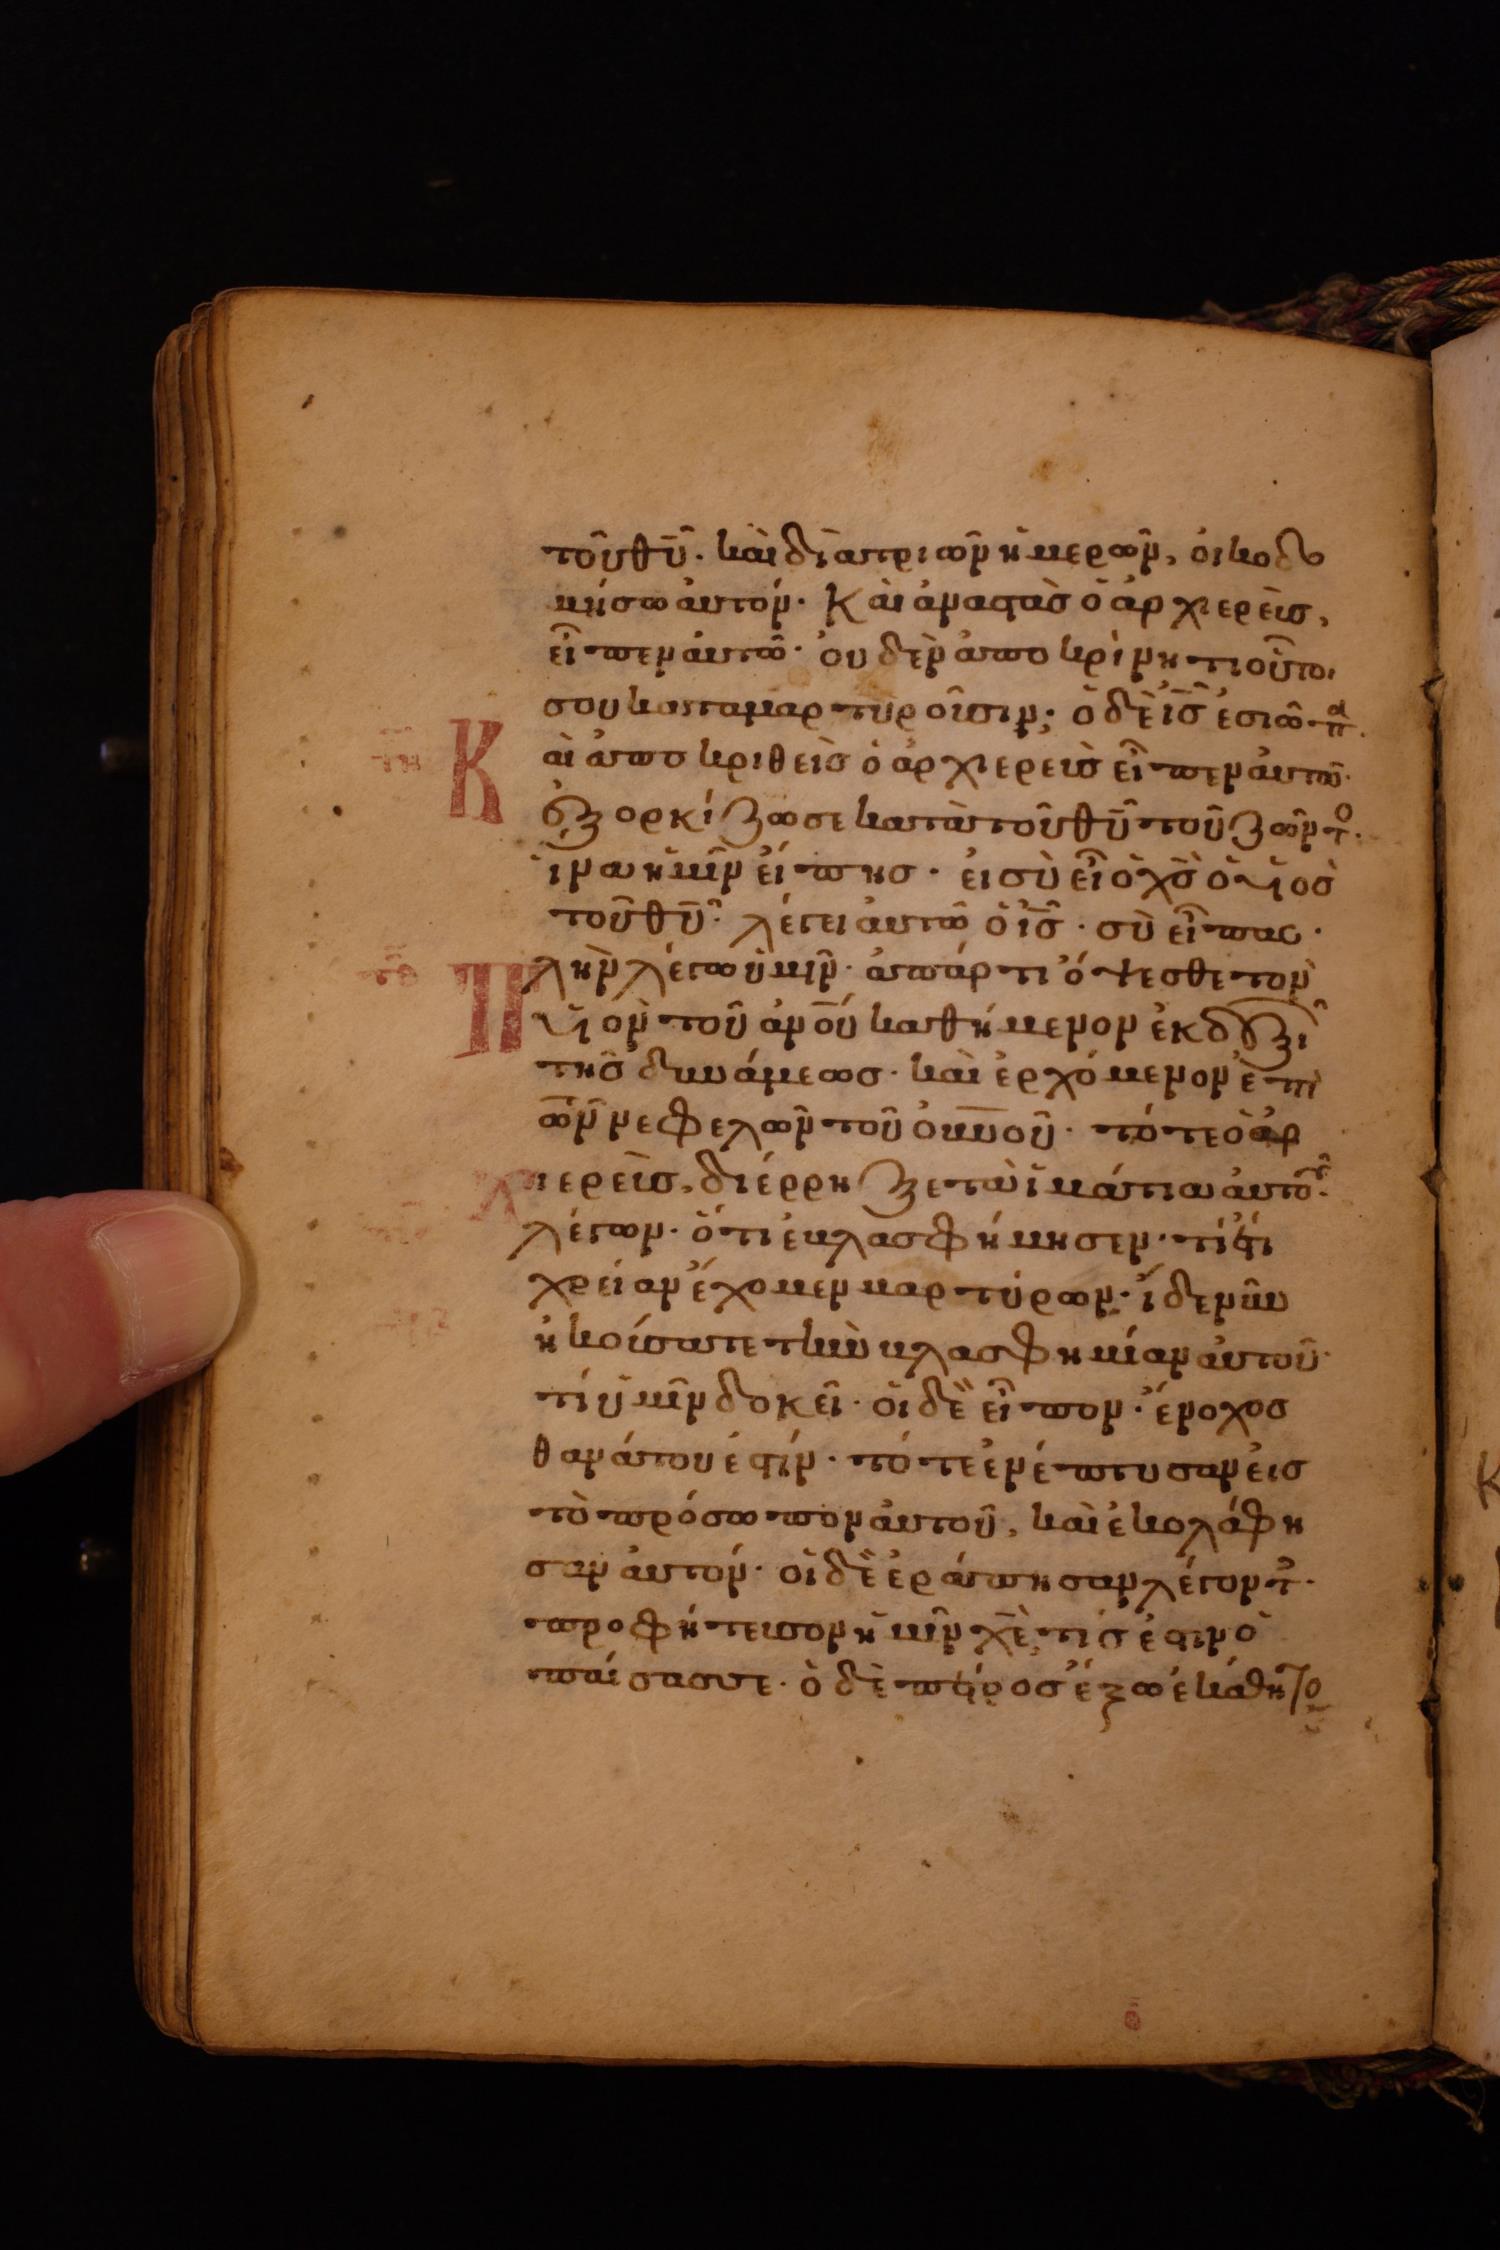 τοῦ θυ̅· καὶ διὰ τριῶν ἡμερῶν, οἰκοδο
μήσω αὐτόν· Καὶ ἀναστὰς ὁ ἀρχιερεὺς,
εἶπεν αὐτῶ· οὐδὲν ἀποκρίνη τι οὗτοι
σου καταμαρτυροῦσιν· ὁ δὲ ις̅ ἐσιώπα
Καὶ ἀποκριθεὶς ὁ ἀρχιερεὺς εἶπεν αὐτῶ·
ἐξορκίζω σε κατὰ τοῦ θυ̅ τοῦ ζῶντο
ἵνα ἡμῖν εἴπης· εἰ σὺ εἶ ὁ χς̅ ὁ υἱὸς
τοῦ θυ̅· λέγει αὐτῶ ὁ ις̅· σὺ εἶπας·
Πλὴν λέγω ὑμῖν· ἀπάρτι ὄψεσθε τὸν
υἱὸν τοῦ ανου̅ καθήμενον ἐκ δεξιῶν
τῆς δυνάμεως· καὶ ἐρχόμενον ἐπὶ
τῶν νεφελῶν τοῦ ουνου̅· τότε ὁ ἀρ
χιερεὺς, διέρρηξε τὰ ἱμάτια αὐτοῦ·
λέγων· ὅτι ἐβλασφήμησεν· τί ἔτι
χρείαν ἔχομεν μαρτύρων· ἴδε νῦν
ἠκούσατε τὴν βλασφημίαν αὐτοῦ·
τί ὑμῖν δοκεῖ· οἱ δὲ εἶπον· ἔνοχος
θανάτου ἐστίν· τότε ἐνέπτυσαν εἰς
τὸ πρόσωπον αὐτοῦ, καὶ ἐκολάφη
σαν αὐτόν· οἱ δὲ ἐράπησαν λέγοντ
προφήτευσον ἡμῖν χε̅ τίς ἐστιν ὁ
παίσας σε· ὁ δὲ πέτρος ἔξω ἐκάθητο